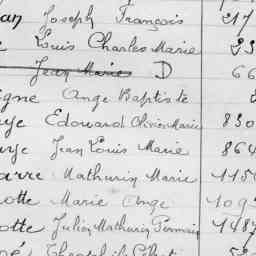 an Joseph François 217
Louis Charles Marie 23
Jean Marie D 66
gne Ange Baptiste
ye Edouard Olivier Marie 830
rye Jean Louis Marie 864
arre Mathurin Marie 1150
otte Marie Ange 109
otte Julien Mathurin Germain 1487
né Théophile